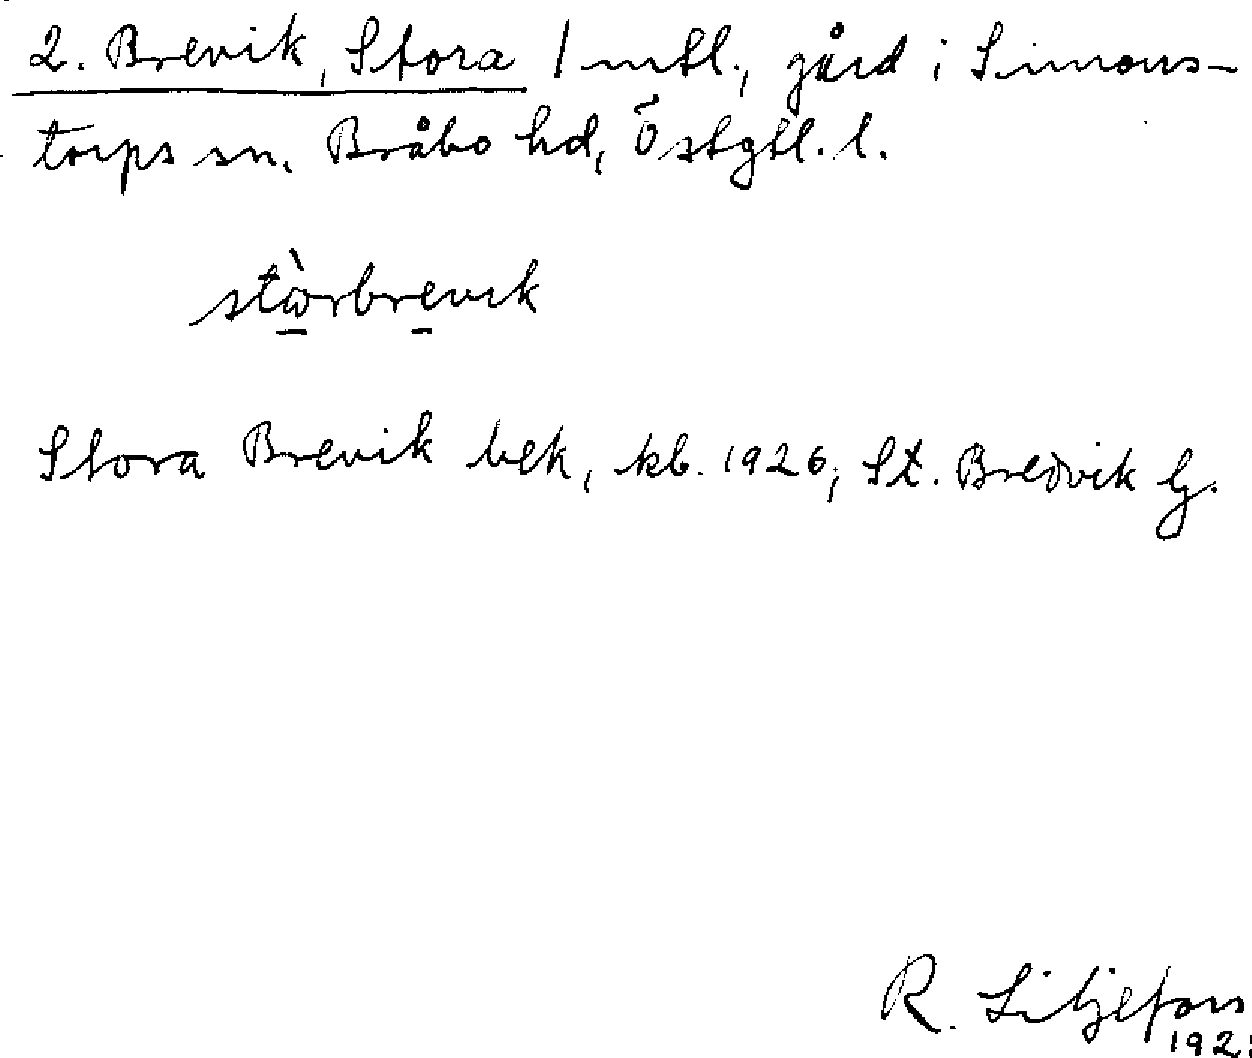 2. Brevik, Stora 1 mtl., gård i Simons-
torps sn. Bråbo hd, Östgtl. l.
stὼrbrevik
Stora Brevik bek, kb. 1926; St. Bredvik G.
R. Liljefors